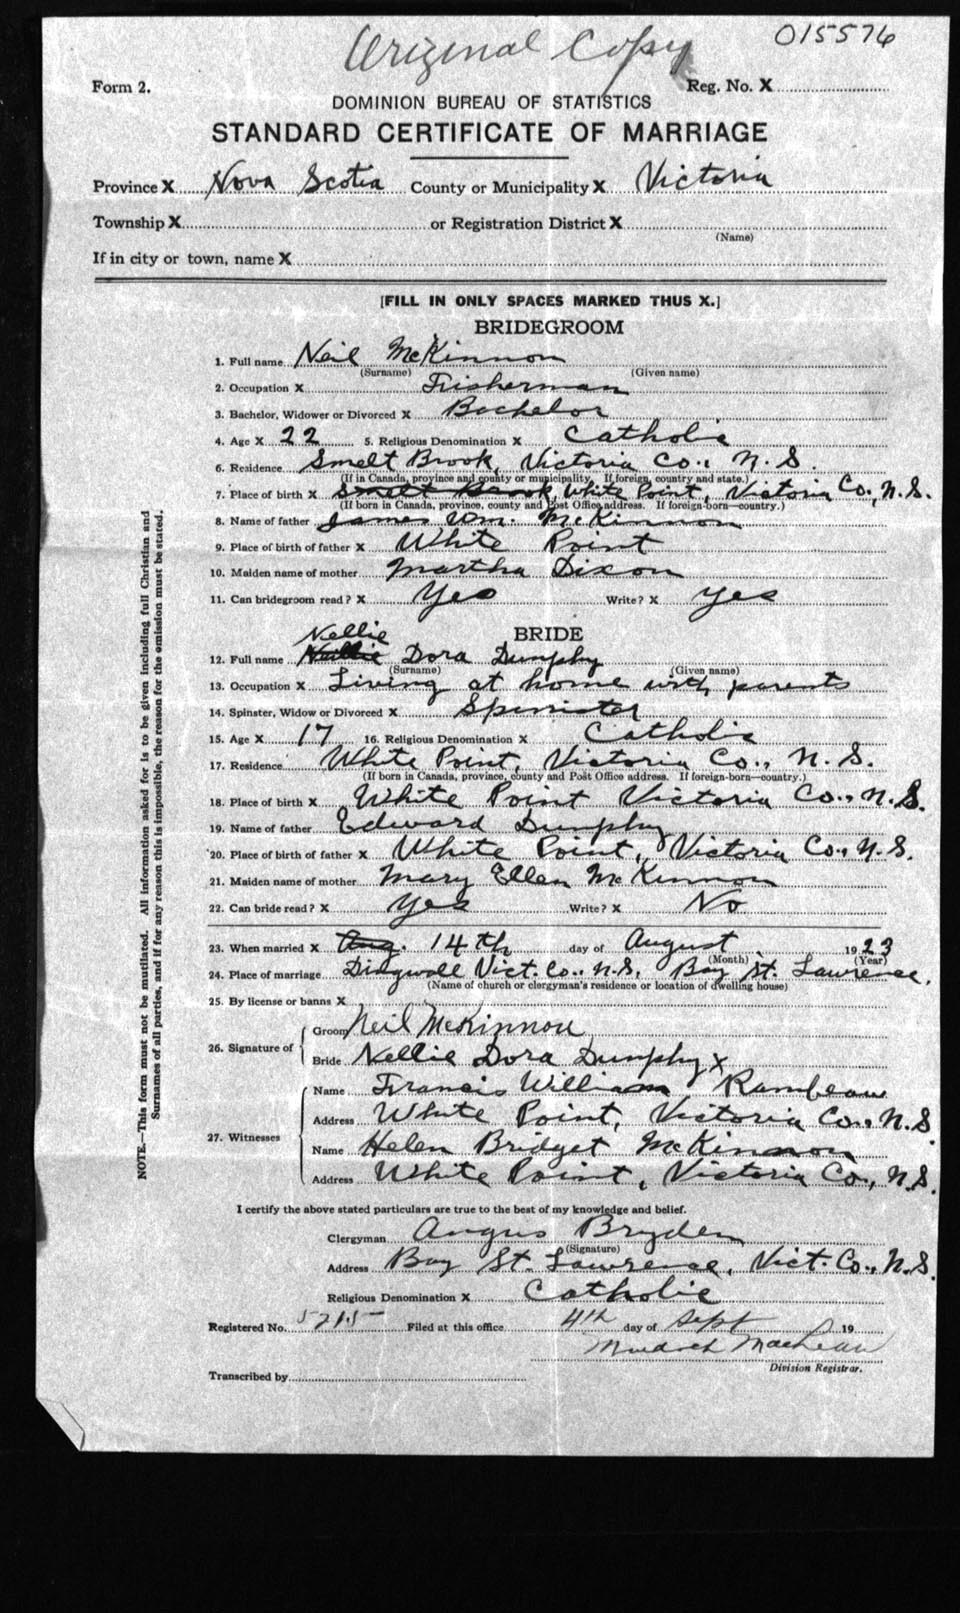 Original Copy
015576
Form 2.
Reg. No. X
DOMINION BUREAU OF STATISTICS
STANDARD CERTIFICATE OF MARRIAGE
Province X Nova Scotia County or Municipality X Victoria
Township X or Registration District X
(Name)
If in city or town, name X
[FILL IN ONLY SPACES MARKED THUS X.]
BRIDEGROOM
1. Full name Neil McKinnon
(Surname) (Given name)
2. Occupation X Fisherman
3. Bachelor, Widower or Divorced X Bachelor
4. Age X 22 5. Religious Denomination X Catholic
6. Residence Smelt Brook, Victoria Co., N.S.
(If in Canada, province and county or municipality. If foreign, country and state.)
7. Place of birth X Smelt Brook, White Point, Victoria Co., N.S.
(If born in Canada, province, county and Post Office address. If foreign-born—country.)
8. Name of father James Wm. McKinnon
9. Place of birth of father X White Point
10. Maiden name of mother Martha Dixon
11. Can bridegroom read? X Yes Write? X yes
BRIDE
Nellie
12. Full name Dora Dunphy
(Surname) (Given name)
13. Occupation X Living at home with parents
14. Spinster, Widow or Divorced X Spinister
15. Age X 17 16. Religious Denomination X Catholic
17. Residence White Point, Victoria Co., N.S.
(If born in Canada, province, county and Post Office address. If foreign-born—country.)
18. Place of birth X White Point Victoria Co., N.S.
19. Name of father Edward Dunphy
20. Place of birth of father X White Point, Victoria Co., N.S.
21. Maiden name of mother Mary Ellen McKinnon
22. Can bride read? X Yes Write? X No
23. When married X Aug. 14th day of August 1923
(Month) (Year)
24. Place of marriage Dingwall Vict. Co., N.S. Bay St. Lawrence.
(Name of church or clergyman's residence or location of dwelling house)
25. By license or banns X
26. Signature of
Groom Neil McKinnon
Bride Nellie Dora Dunphy x
27. Witnesses
Name Francis William Rambeau
Address White Point, Victoria Co., N.S.
Name Helen Bridget McKinnon
Address White Point, Victoria Co., N.S.
I certify the above stated particulars are true to the best of my knowledge and belief.
Clergyman Angus Bryden
(Signature)
Address Bay St. Lawrence, Vict. Co., N.S.
Religious Denomination X Catholic
Registered No. 5215 Filed at this office 4th day of Sept 19
Murdoch MacLean
Division Registrar.
Transcribed by
NOTE.—This form must not be mutilated. All information asked for is to be given including full Christian and
Surnames of all parties, and if for any reason this is impossible, the reason for the omission must be stated.